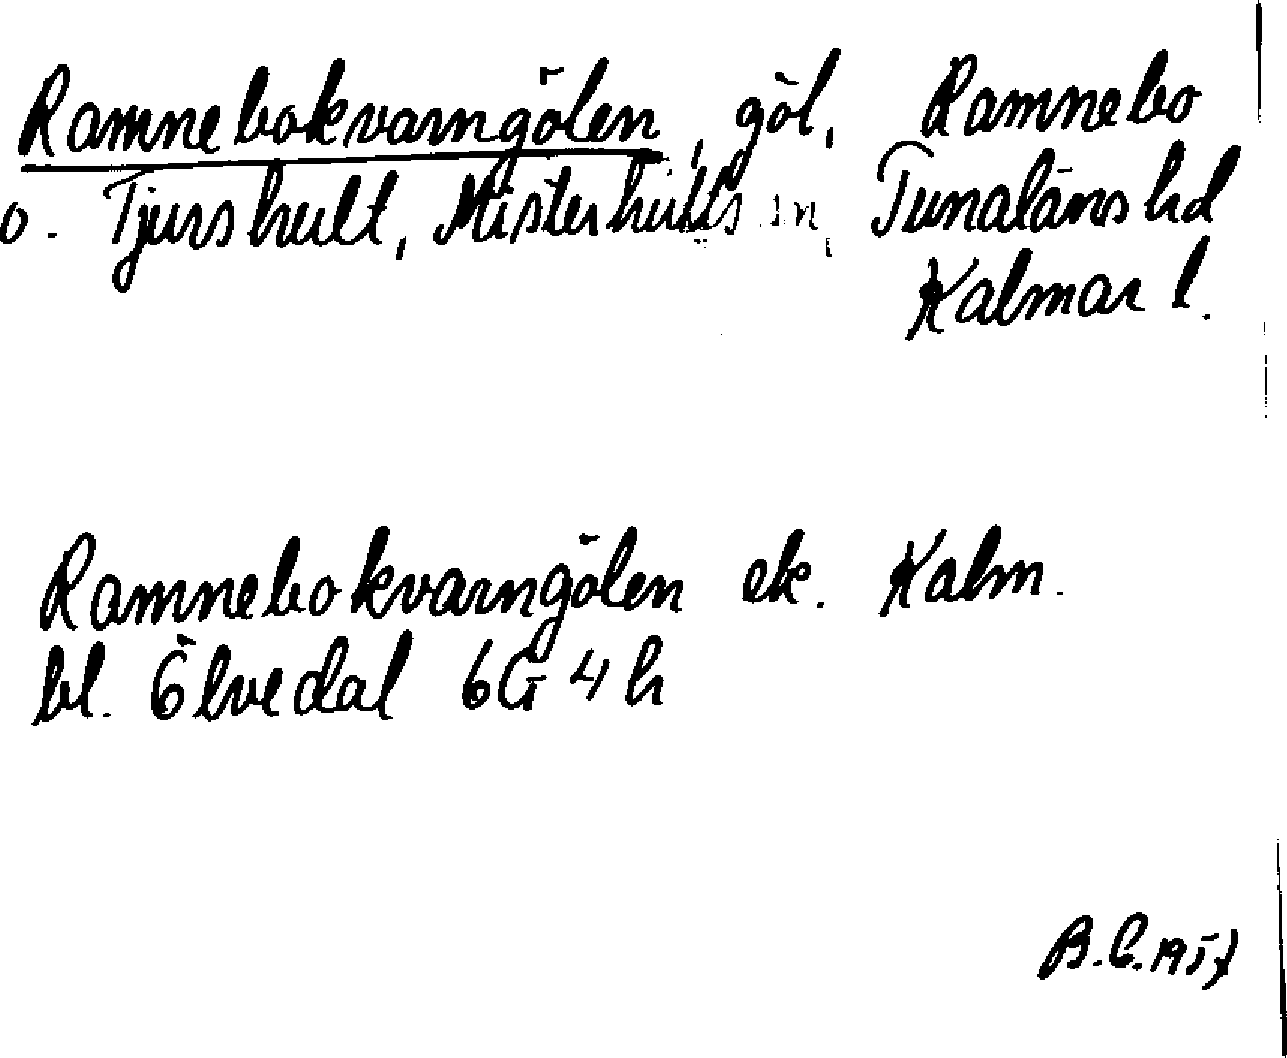 Ramnebokvarngölen, göl, Ramnebo
o. Tjurshult, Misterhults sn, Tunaläns hd
Kalmar l.
Ramnebokvarngölen ek. Kalm.
bl. Ölvedal 6G 4h
B.C. 1957